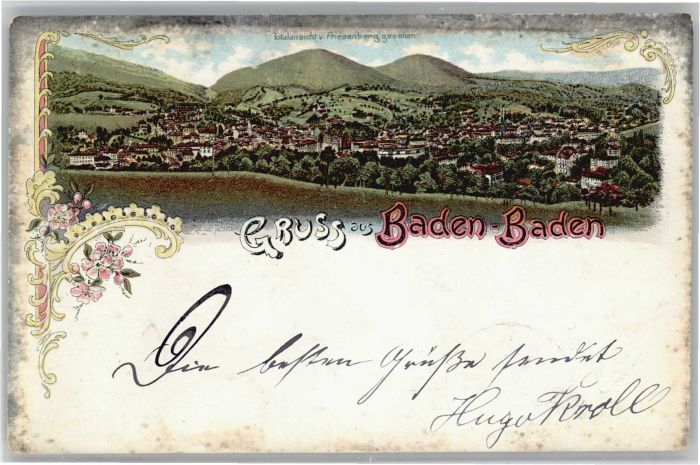 Totalansicht v. Friesenberg gesehen
GRUSS aus Baden-Baden
Die besten Grüße sendet
Hugo Kroll